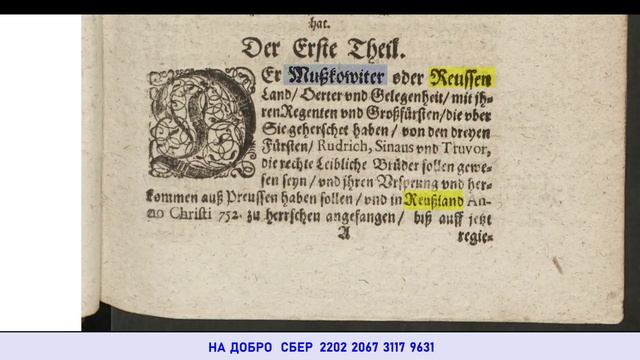 hat.
Der Erste Theil.
DEr Mußkowiter oder Reussen
Land/ Oerter vnd Gelegenheit/ mit jh-
ren Regenten vnd Großfürsten/ die vber
Sie geherschet haben/ von den dreyen
Fürsten/ Rudrich, Sinaus vnd Truvor,
die rechte Leibliche Brüder sollen gewe-
sen seyn/ vnd jhren Vrsprung vnd her-
kommen auß Preussen haben sollen/ vnd in Reußland An-
no Christi 752. zu herrschen angefangen/ biß auff jetzt
A regie-
НА ДОБРО СБЕР 2202 2067 3117 9631